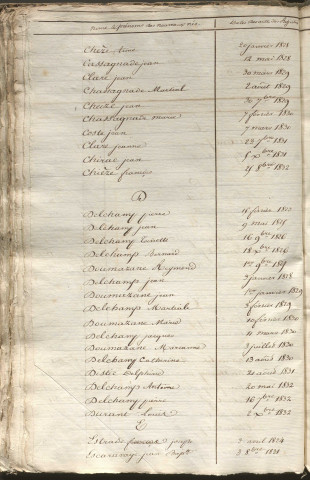 Noms et prénoms des nouveaux nés. Dates des actes des Registres
Chièze 20 janvier 1828
Cassagnade jean 12 mai 1828
Clare jean 30 mars 1829
Chassagnade Martial 2 août 1829
Chièze jean 30 7bre 1829
Chassagnade marie 7 février 1830
Coste jean 7 mars 1830
Clare jeanne 23 7bre 1831
Chirac jean 5 Xbre 1831
Chièze françois 25 8bre 1832
D
Delchamp pierre 16 février
Delchamp jean 9 mai
Delchamp 16 9bre 1826
Delchamps Bernard 18 Xbre 1826
Doumazane Reymond 1er 9bre
Delchamps jean janvier 1828
Doumazane jean 1er janvier 1829
Delchamps Martiale 8 février 1829
Doumazane Marie 20 février 1830
Delchamp jacques 11 mars 1830
Doumazane Marianne 3 juillet 1830
Delchamp Catherine 13 août 1830
Destic Delphine 20 août 1831
Delchamps Antoine 20 mai 1832
Delchamp pierre 16 7bre 1832
Durant Louis 2 Xbre 1832
E
Estrade françois joseph 3 avril 1824
Escaravage jean Bapte 3 8bre 1831